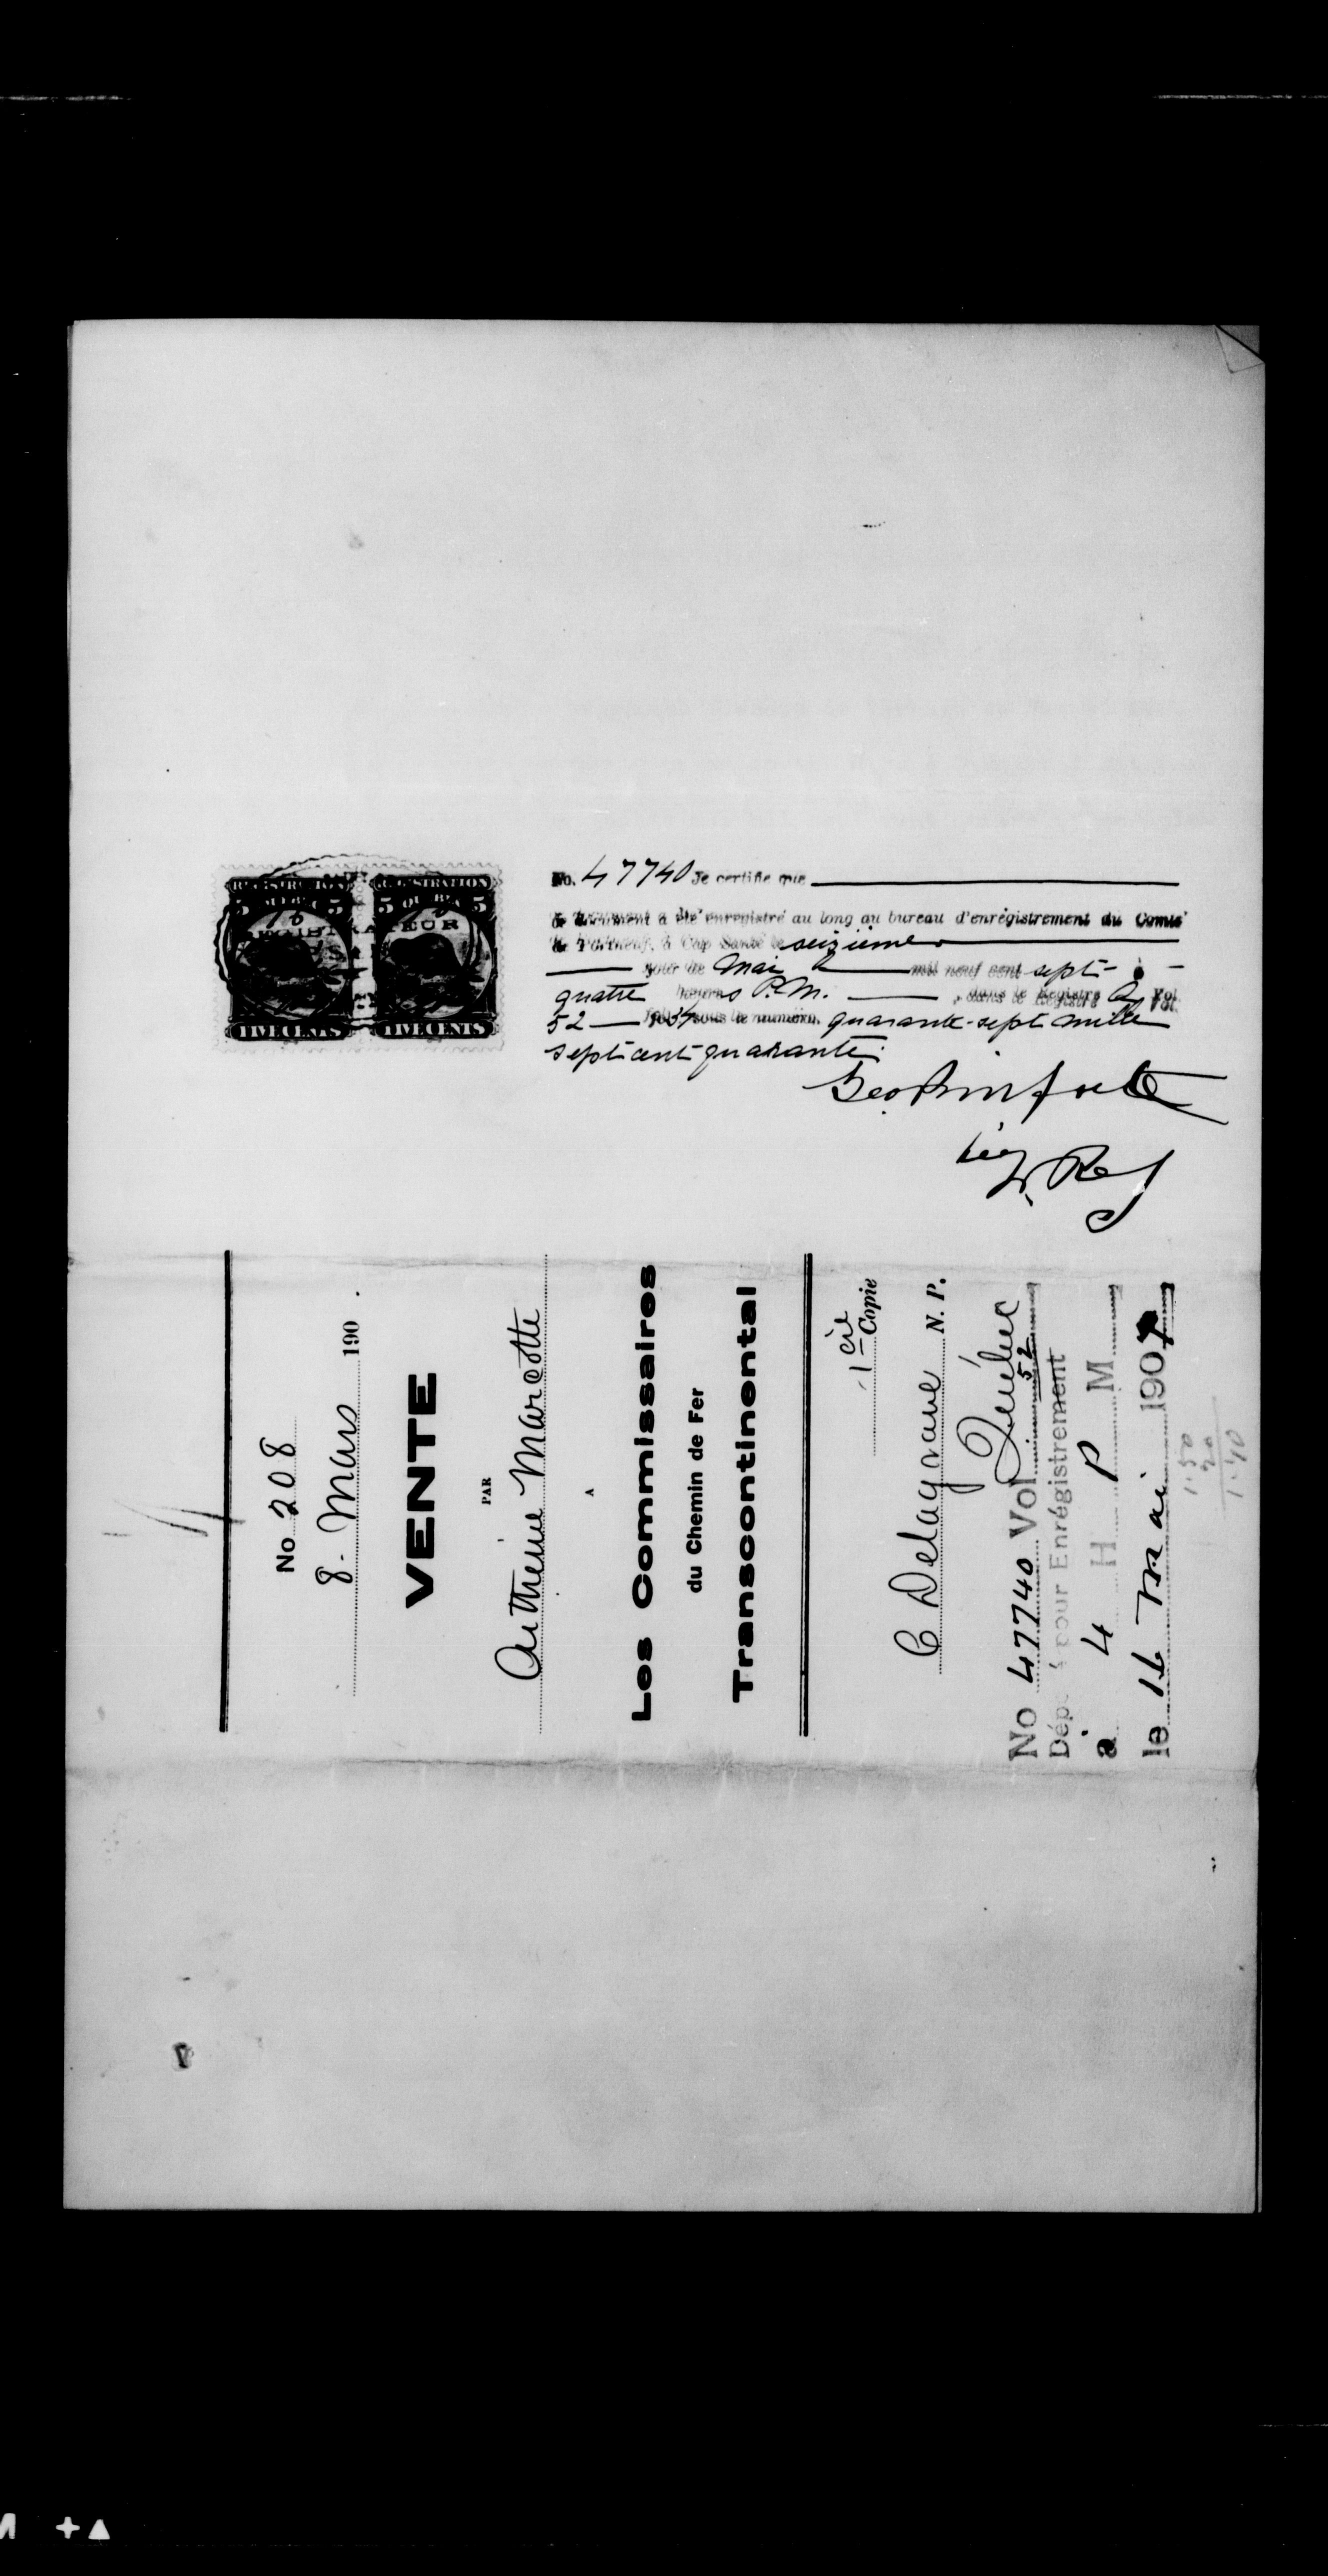 REGISTRATION REGISTRATION
5 QUEBEC 5 5 QUEBEC 5
FIVE CENTS FIVE CENTS
No. 47740 Je certifie que
le document a été enregistré au long au bureau d'enrégistrement du Comté
de Portneuf, à Cap Santé le seizième
jour de Mai mil neuf cent sept
quatre heures P.M. , dans le Registre Vol.
52 sous le numéro. quarante-sept mille
sept cent quarante.
No 208
8. Mars 190 .
VENTE
PAR
Marcotte
A
Les Commissaires
du Chemin de Fer
Transcontinental
1ère Copie
C Delagrave N. P.
Québec
No 47740 Vol 52
Dép pour Enrégistrement
à 4 H P M
le 16 mai 1907
1.50
20
1.40